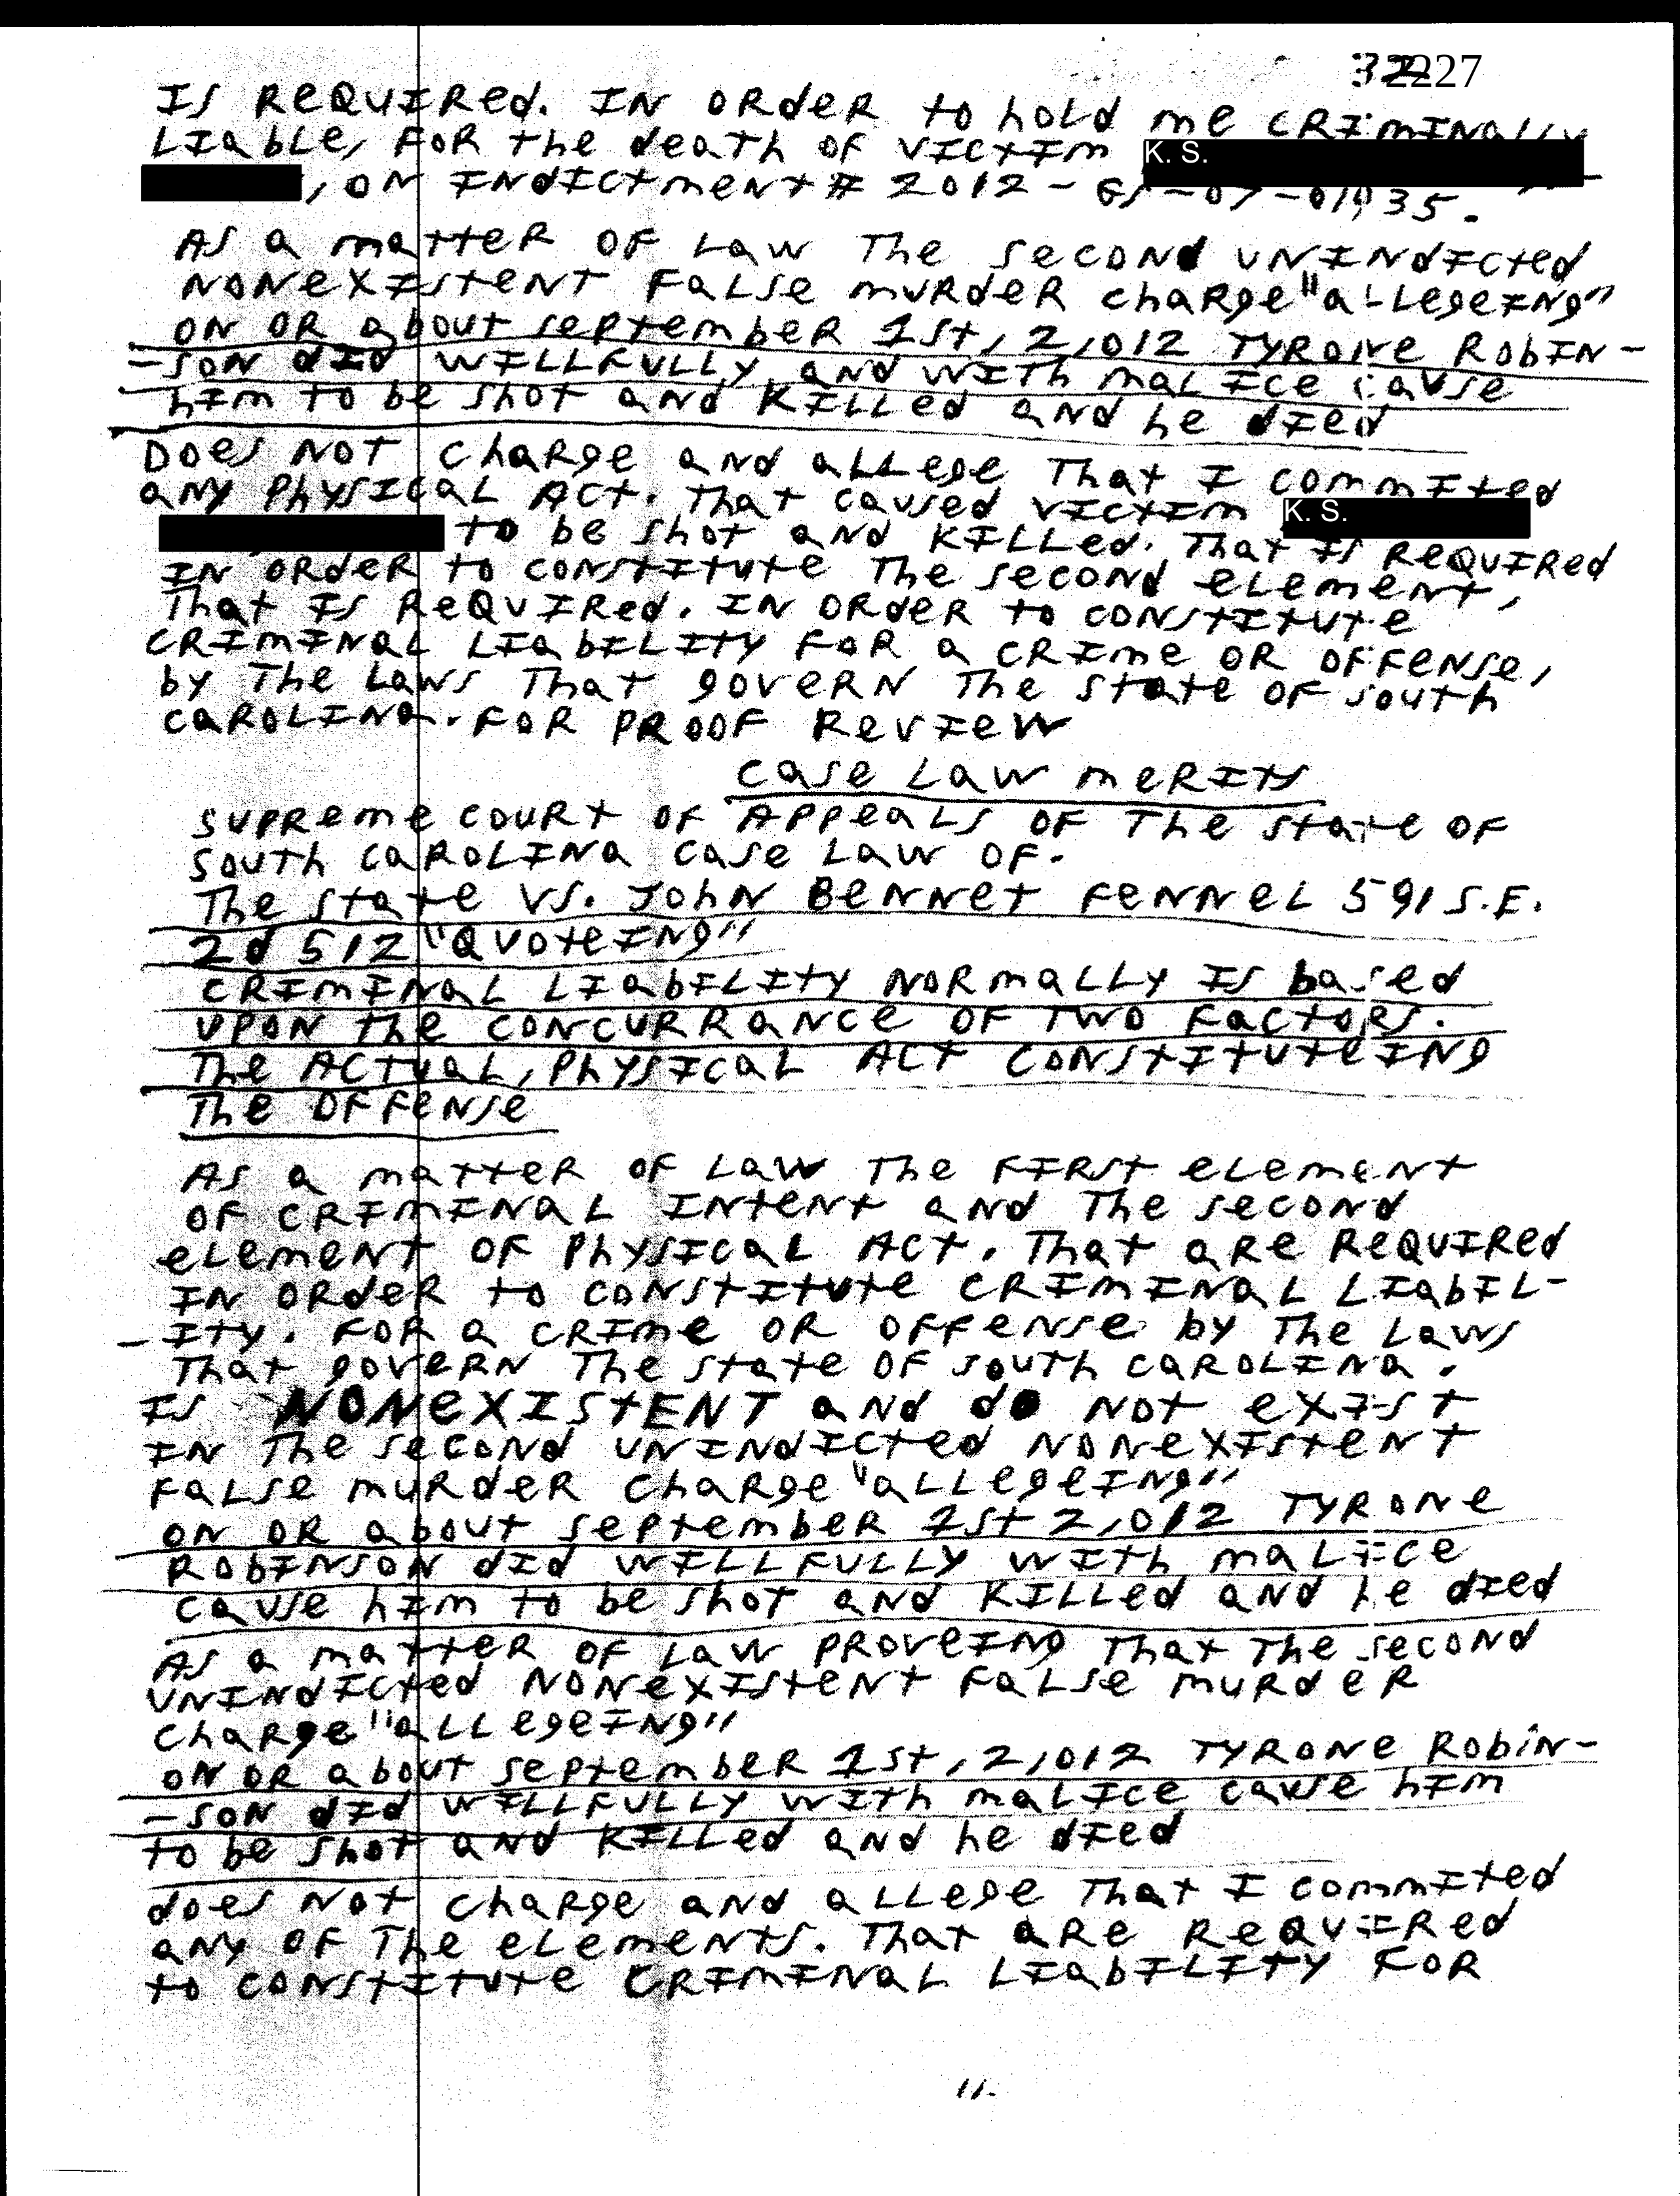 227
Is Required. In order to hold me criminally
Liable, for the death of victim K. S.
, on Indictment # 2012-GS-07-01935.
As a matter of Law the second unindicted
nonexistent false murder charge "allegeing"
on or about september 1st, 2,012 Tyrone Robin-
-son did willfully and with malice cause
him to be shot and killed and he died
Does not charge and allege that I commited
any physical Act. That caused victim K. S.
to be shot and killed. That is required
in order to constitute the second element,
that is required. In order to constitute
criminal liability for a crime or offense,
by the laws that govern the state of south
carolina. For proof review
case Law merits
supreme court of Appeals of the state of
south carolina case law of.
The state vs. John Bennet Fennel 591 S.E.
2d 512 "Quoteing"
criminal liability normally is based
upon the concurrance of two factors.
The Actual, physical Act constituteing
the offense
As a matter of Law the first element
of criminal intent and the second
element of physical Act. That are required
in order to constitute criminal liabil-
-ity. For a crime or offense by the laws
that govern the state of south carolina.
Is NONEXISTENT and do not exist
in the second unindicted nonexistent
false murder charge "allegeing"
on or about september 1st 2,012 Tyrone
Robinson did willfully with malice
cause him to be shot and killed and he died
As a matter of Law proveing that the second
unindicted nonexistent false murder
charge "allegeing"
on or about september 1st, 2,012 Tyrone Robin-
-son did willfully with malice cause him
to be shot and killed and he died
does not charge and allege that I commited
any of the elements. That are required
to constitute criminal liability for
11.